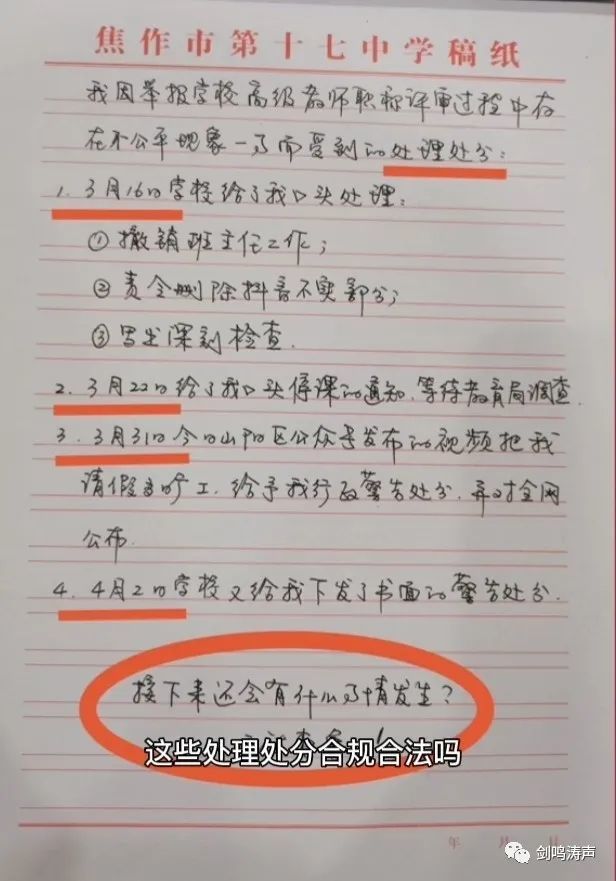 焦作市第十七中学稿纸
我因举报学校高级教师职称评审过程中存
在不公平现象一事而受到的处理处分：
1.3月16日学校给了我口头处理：
①撤销班主任工作；
②责令删除抖音不实部分；
③写出深刻检查.
2.3月22日给了我口头停课的通知、等待教育局调查.
3.3月31日今日山阳区公众号发布的视频把我
请假当旷工，给予我行政警告处分，并对全网
公布.
4.4月2日学校又给我下发了书面的警告处分.
接下来还会有什么事情发生？
这些处理处分合规合法吗
年 月 日
剑鸣涛声